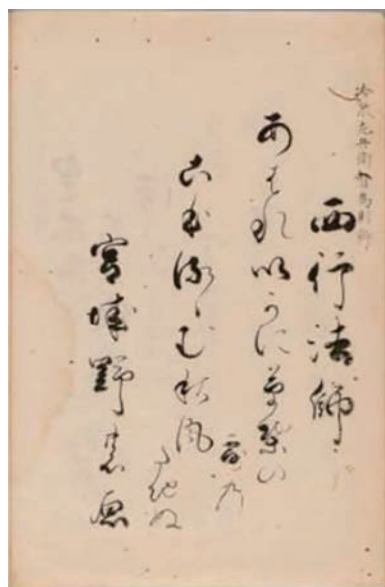 冷泉左兵衛督
西行法師
あはれいかに草葉の
露の
こほるらむ秋風
たちぬ
宮城野の原